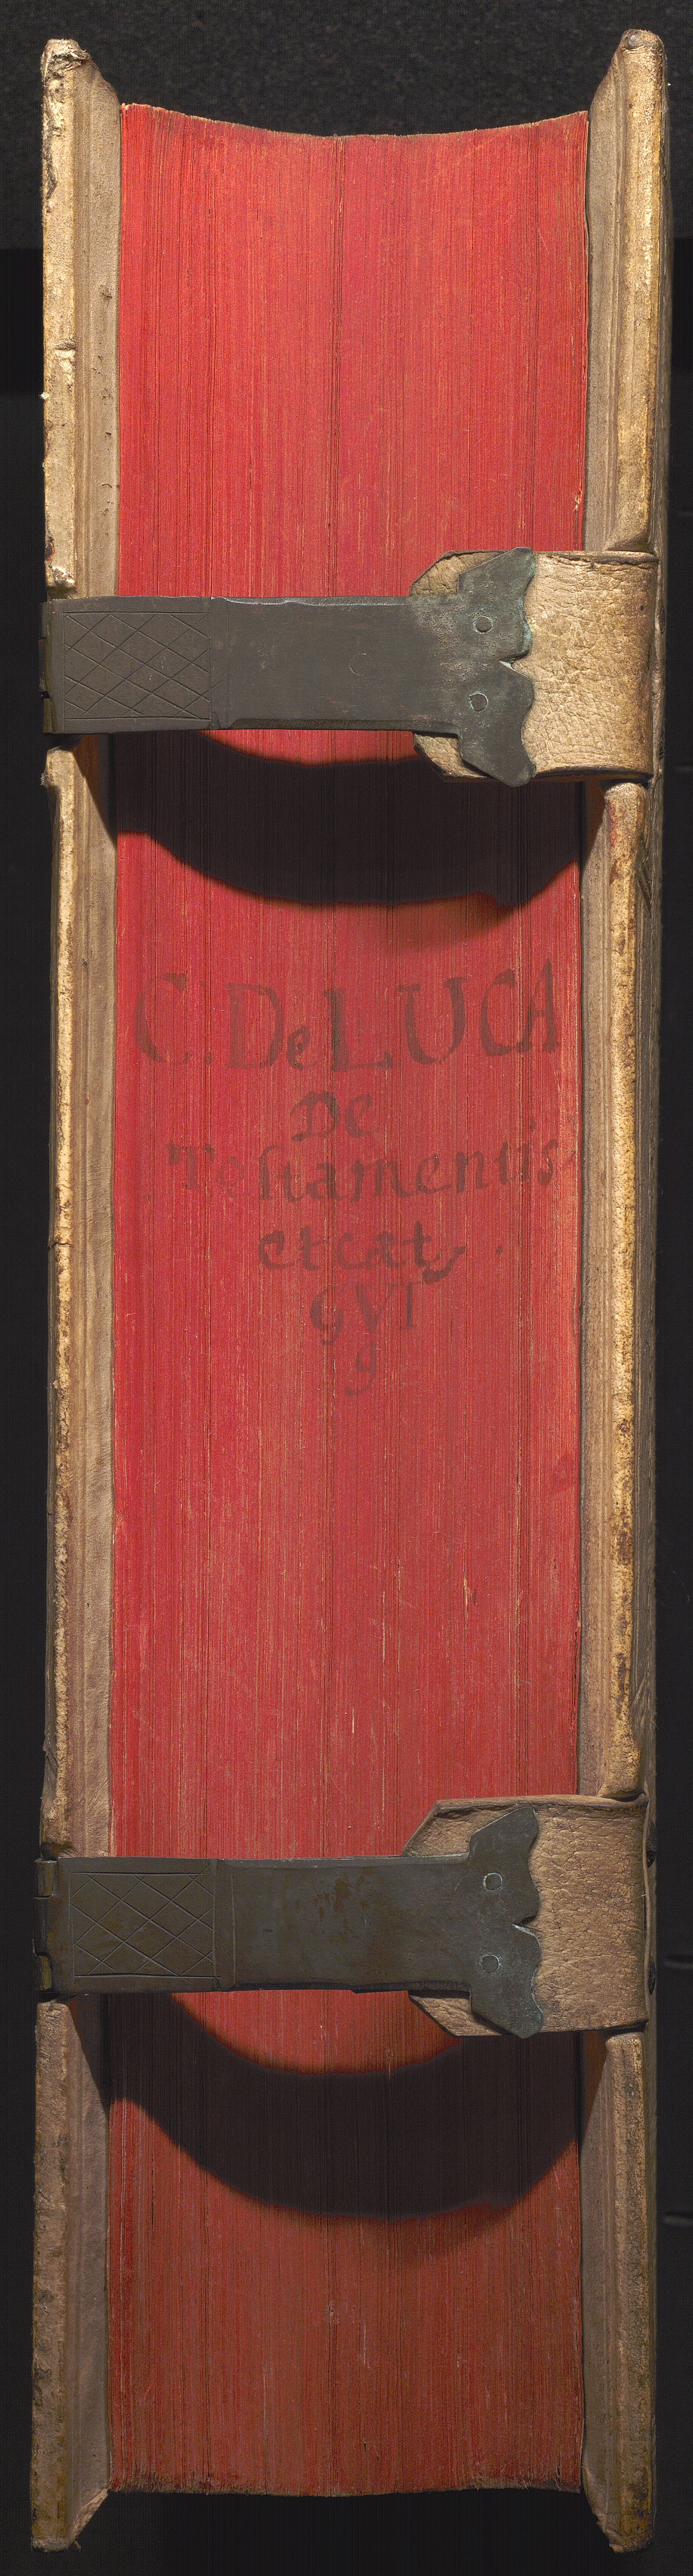 C. De LUCA
De
Testamentis
et cæt.
GVI
9